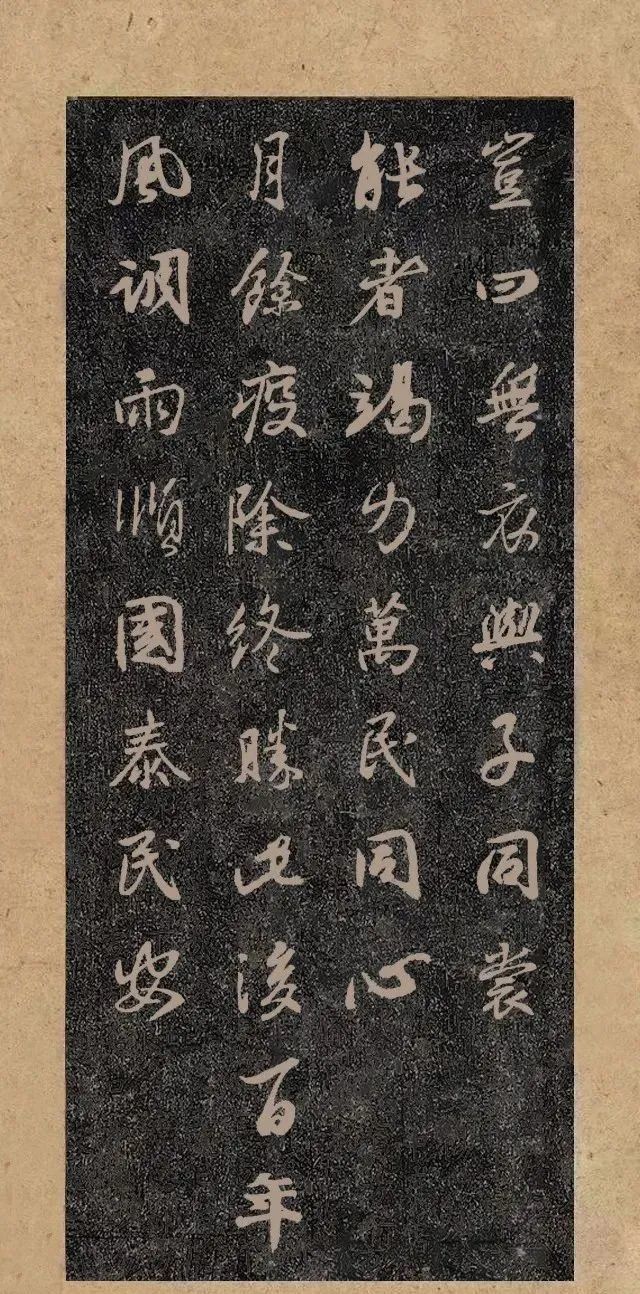 豈曰無衣與子同裳
能者竭力萬民同心
月餘疫除終勝此後百年
風調雨順國泰民安